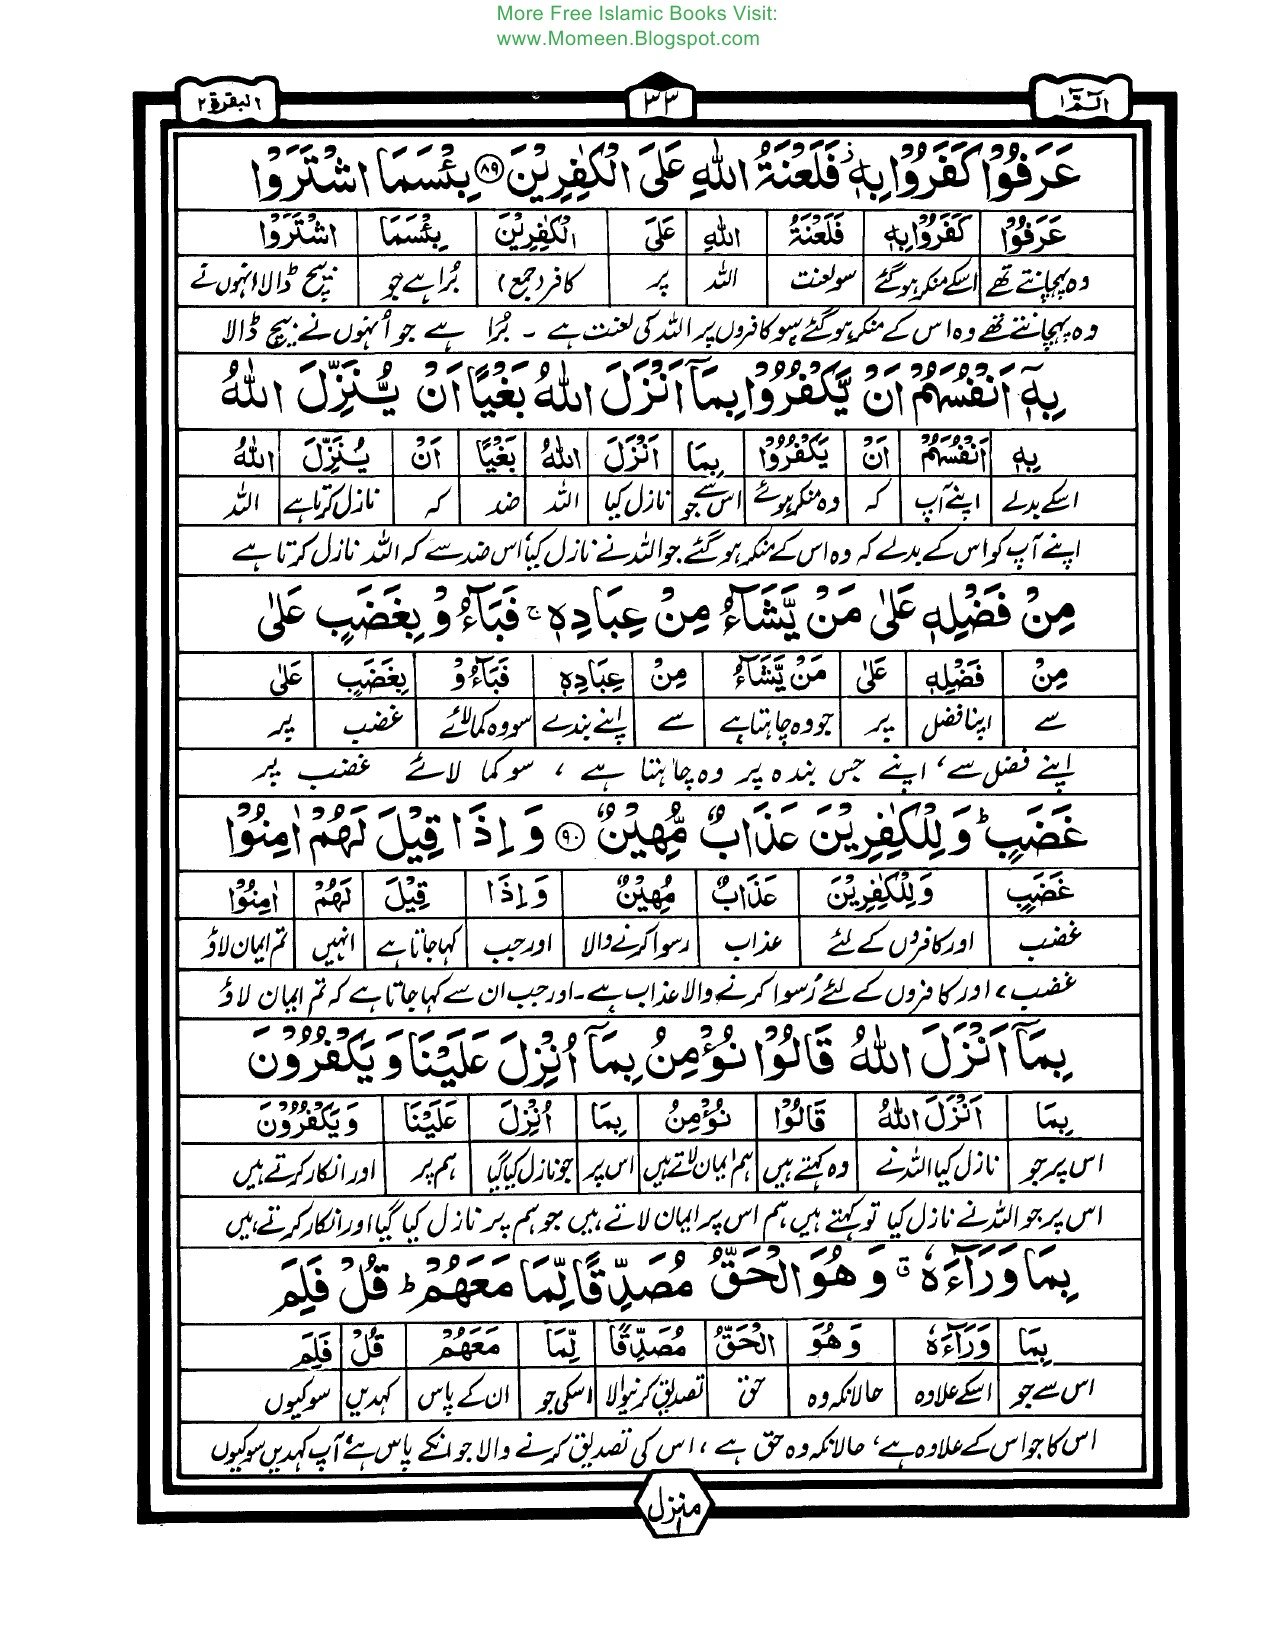 More Free Islamic Books Visit:
www.Momeen.Blogspot.com
الٓمّٓ ١ ٣٣ البقرة ٢
عَرَفُوْا كَفَرُوْا بِهٖ ؗ فَلَعْنَةُ اللّٰهِ عَلَى الْكٰفِرِيْنَ ﴿٨٩﴾ بِئْسَمَا اشْتَرَوْا
عَرَفُوْا كَفَرُوْا بِهٖ فَلَعْنَةُ اللّٰهِ عَلَى الْكٰفِرِيْنَ بِئْسَمَا اشْتَرَوْا
وہ پہچانتے تھے اسکے منکر ہوگئے سو لعنت اللہ پر کافر (جمع) بُرا ہے جو بیچ ڈالا انہوں نے
وہ پہچانتے تھے وہ اس کے منکر ہوگئے سو کافروں پر اللہ کی لعنت ہے ۔ بُرا ہے جو اُنہوں نے بیچ ڈالا
بِهٖٓ اَنْفُسَهُمْ اَنْ يَّكْفُرُوْا بِمَآ اَنْزَلَ اللّٰهُ بَغْيًا اَنْ يُّنَزِّلَ اللّٰهُ
بِهٖ اَنْفُسَهُمْ اَنْ يَكْفُرُوْا بِمَا اَنْزَلَ اللّٰهُ بَغْيًا اَنْ يُنَزِّلَ اللّٰهُ
اسکے بدلے اپنے آپ کہ وہ منکر ہوئے اس سے جو نازل کیا اللہ ضد کہ نازل کرتا ہے اللہ
اپنے آپ کو اس کے بدلے کہ وہ اس کے منکر ہوگئے جو اللہ نے نازل کیا اس ضد سے کہ اللہ نازل کرتا ہے
مِنْ فَضْلِهٖ عَلٰى مَنْ يَّشَآءُ مِنْ عِبَادِهٖ ۚ فَبَآءُوْ بِغَضَبٍ عَلٰى
مِنْ فَضْلِهٖ عَلٰى مَنْ يَّشَآءُ مِنْ عِبَادِهٖ فَبَآءُوْ بِغَضَبٍ عَلٰى
سے اپنا فضل پر جو وہ چاہتا ہے سے اپنے بندے سو وہ کمالائے غضب پر
اپنے فضل سے، اپنے جس بندہ پر وہ چاہتا ہے ، سو کما لائے غضب پر
غَضَبٍ ؕ وَلِلْكٰفِرِيْنَ عَذَابٌ مُّهِيْنٌ ﴿٩٠﴾ وَاِذَا قِيْلَ لَهُمْ اٰمِنُوْا
غَضَبٍ وَلِلْكٰفِرِيْنَ عَذَابٌ مُهِيْنٌ وَاِذَا قِيْلَ لَهُمْ اٰمِنُوْا
غضب اور کافروں کے لئے عذاب رسوا کرنے والا اور جب کہا جاتا ہے انہیں تم ایمان لاؤ
غضب، اور کافروں کے لئے رُسوا کرنے والا عذاب ہے۔ اور جب ان سے کہا جاتا ہے کہ تم ایمان لاؤ
بِمَآ اَنْزَلَ اللّٰهُ قَالُوْا نُؤْمِنُ بِمَآ اُنْزِلَ عَلَيْنَا وَيَكْفُرُوْنَ
بِمَا اَنْزَلَ اللّٰهُ قَالُوْا نُؤْمِنُ بِمَا اُنْزِلَ عَلَيْنَا وَيَكْفُرُوْنَ
اس پر جو نازل کیا اللہ نے وہ کہتے ہیں ہم ایمان لاتے ہیں اس پر جو نازل کیا گیا ہم پر اور انکار کرتے ہیں
اس پر جو اللہ نے نازل کیا تو کہتے ہیں ہم اس پر ایمان لاتے ہیں جو ہم پر نازل کیا گیا اور انکار کرتے ہیں
بِمَا وَرَآءَهٗ ۗ وَهُوَ الْحَقُّ مُصَدِّقًا لِّمَا مَعَهُمْ ؕ قُلْ فَلِمَ
بِمَا وَرَآءَهٗ وَهُوَ الْحَقُّ مُصَدِّقًا لِّمَا مَعَهُمْ قُلْ فَلِمَ
اس سے جو اسکے علاوہ حالانکہ وہ حق تصدیق کرنیوالا اسکی جو ان کے پاس کہدیں سو کیوں
اس کا جو اس کے علاوہ ہے، حالانکہ وہ حق ہے ، اس کی تصدیق کرنے والا جو انکے پاس ہے، آپ کہدیں سو کیوں
منزل ١